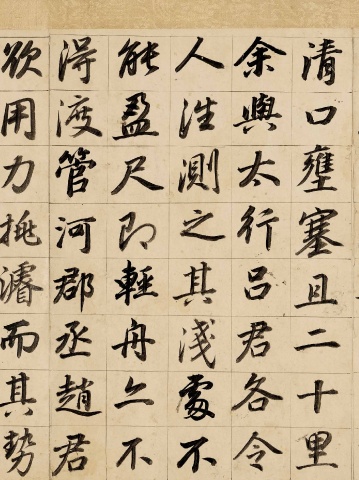 清口壅塞且二十里
余與太行呂君各令
人往測之其淺處不
能盈尺即輕舟亦不
得渡管河郡丞趙君
欲用力挑濬而其勢